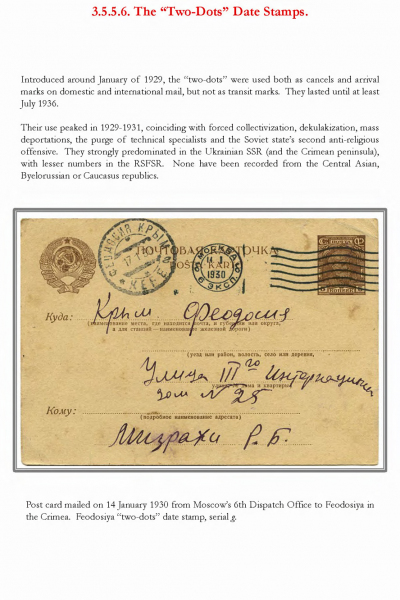 3.5.5.6. The “Two-Dots” Date Stamps.
Introduced around January of 1929, the “two-dots” were used both as cancels and arrival
marks on domestic and international mail, but not as transit marks. They lasted until at least
July 1936.
Their use peaked in 1929-1931, coinciding with forced collectivization, dekulakization, mass
deportations, the purge of technical specialists and the Soviet state’s second anti-religious
offensive. They strongly predominated in the Ukrainian SSR (and the Crimean peninsula),
with lesser numbers in the RSFSR. None have been recorded from the Central Asian,
Byelorussian or Caucasus republics.
ФЕОДОСИЯ КРЫМ
МОСКВА
14.1
1930
6 ЭКСП.
ПОЧТОВАЯ КАРТОЧКА
Куда: Крым Феодосия
(наименование места, где находится почта, и губернии или округа,
а для станций – наименование железной дороги)
(уезд или район, волость, село или деревня,
Улица IIIго Интернационала
дом N 25
Кому:
(подробное наименование адресата)
Мизрахи Р. Б.
Post card mailed on 14 January 1930 from Moscow’s 6th Dispatch Office to Feodosiya in
the Crimea. Feodosiya “two-dots” date stamp, serial g.